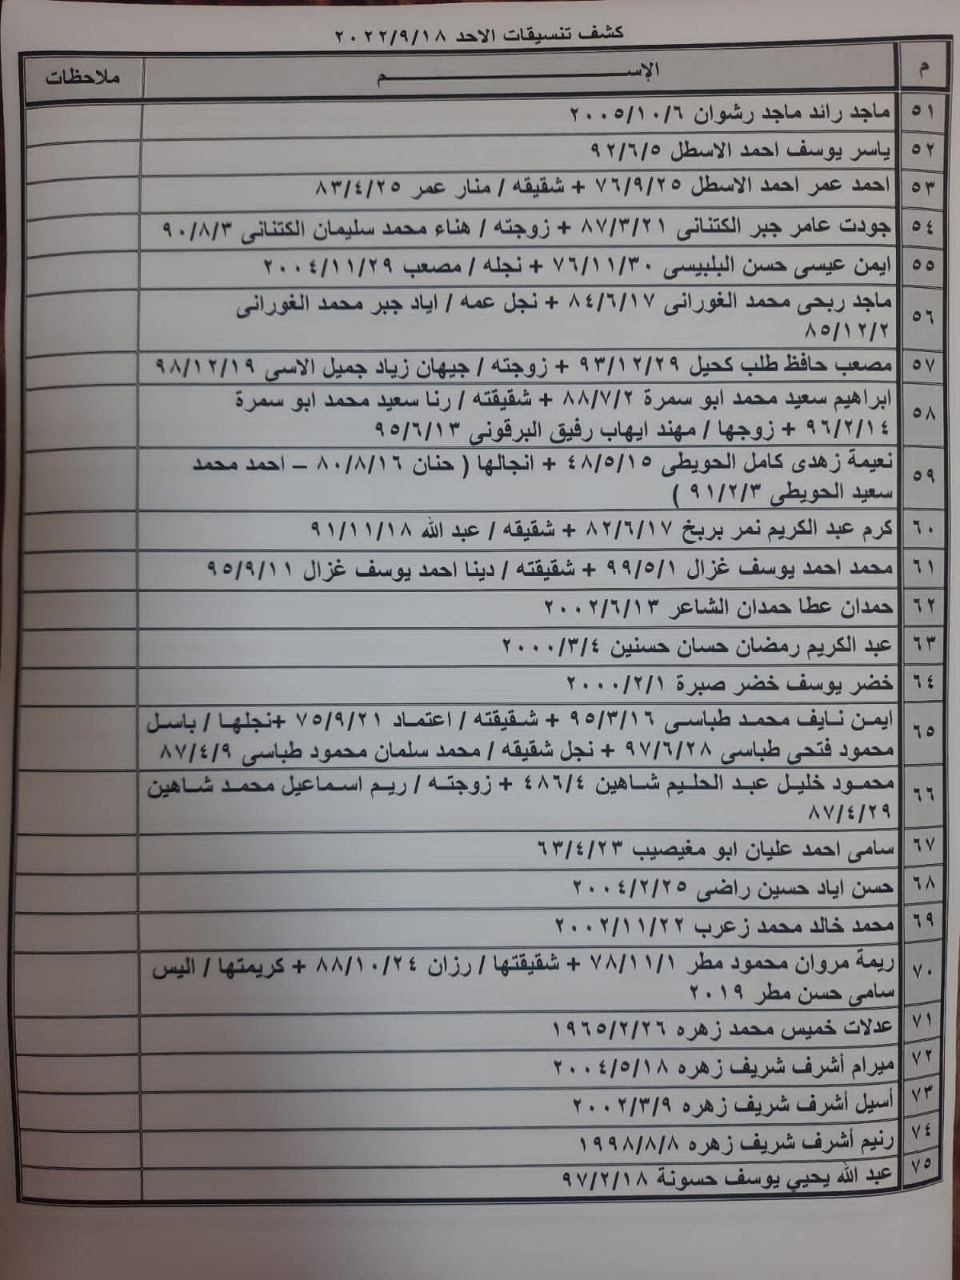 كشف تنسيقات الاحد ٢٠٢٢/٩/١٨
م الإســـــــــم ملاحظات
٥١ ماجد رائد ماجد رشوان ٢٠٠٥/١٠/٦
٥٢ ياسر يوسف احمد الاسطل ٩٢/٦/٥
٥٣ احمد عمر احمد الاسطل ٧٦/٩/٢٥ + شقيقه / منار عمر ٨٣/٤/٢٥
٥٤ جودت عامر جبر الكتنانى ٨٧/٣/٢١ + زوجته / هناء محمد سليمان الكتنانى ٩٠/٨/٣
٥٥ ايمن عيسى حسن البلبيسى ٧٦/١١/٣٠ + نجله / مصعب ٢٠٠٤/١١/٢٩
٥٦ ماجد ربحى محمد الغورانى ٨٤/٦/١٧ + نجل عمه / اياد جبر محمد الغورانى
٨٥/١٢/٢
٥٧ مصعب حافظ طلب كحيل ٩٣/١٢/٢٩ + زوجته / جيهان زياد جميل الاسى ٩٨/١٢/١٩
٥٨ ابراهيم سعيد محمد ابو سمرة ٨٨/٧/٢ + شقيقته / رنا سعيد محمد ابو سمرة
٩٦/٢/١٤ + زوجها / مهند ايهاب رفيق البرقونى ٩٥/٦/١٣
٥٩ نعيمة زهدى كامل الحويطى ٤٨/٥/١٥ + انجالها ( حنان ٨٠/٨/١٦ – احمد محمد
سعيد الحويطى ٩١/٢/٣ )
٦٠ كرم عبد الكريم نمر بربخ ٨٢/٦/١٧ + شقيقه / عبد الله ٩١/١١/١٨
٦١ محمد احمد يوسف غزال ٩٩/٥/١ + شقيقته / دينا احمد يوسف غزال ٩٥/٩/١١
٦٢ حمدان عطا حمدان الشاعر ٢٠٠٢/٦/١٣
٦٣ عبد الكريم رمضان حسان حسنين ٢٠٠٠/٣/٤
٦٤ خضر يوسف خضر صبرة ٢٠٠٠/٢/١
٦٥ ايمن نايف محمد طباسى ٩٥/٣/١٦ + شقيقته / اعتماد ٧٥/٩/٢١ +نجلها / باسل
محمود فتحى طباسى ٩٧/٦/٢٨ + نجل شقيقه / محمد سلمان محمود طباسى ٨٧/٤/٩
٦٦ محمود خليل عبد الحليم شاهين ٤٨٦/٤ + زوجته / ريم اسماعيل محمد شاهين
٨٧/٤/٢٩
٦٧ سامى احمد عليان ابو مغيصيب ٦٣/٤/٢٣
٦٨ حسن اياد حسين راضى ٢٠٠٤/٢/٢٥
٦٩ محمد خالد محمد زعرب ٢٠٠٢/١١/٢٢
٧٠ ريمة مروان محمود مطر ٧٨/١١/١ + شقيقتها / رزان ٨٨/١٠/٢٤ + كريمتها / اليس
سامى حسن مطر ٢٠١٩
٧١ عدلات خميس محمد زهره ١٩٦٥/٢/٢٦
٧٢ ميرام أشرف شريف زهره ٢٠٠٤/٥/١٨
٧٣ أسيل أشرف شريف زهره ٢٠٠٢/٣/٩
٧٤ رنيم أشرف شريف زهره ١٩٩٨/٨/٨
٧٥ عبد الله يحيي يوسف حسونة ٩٧/٢/١٨